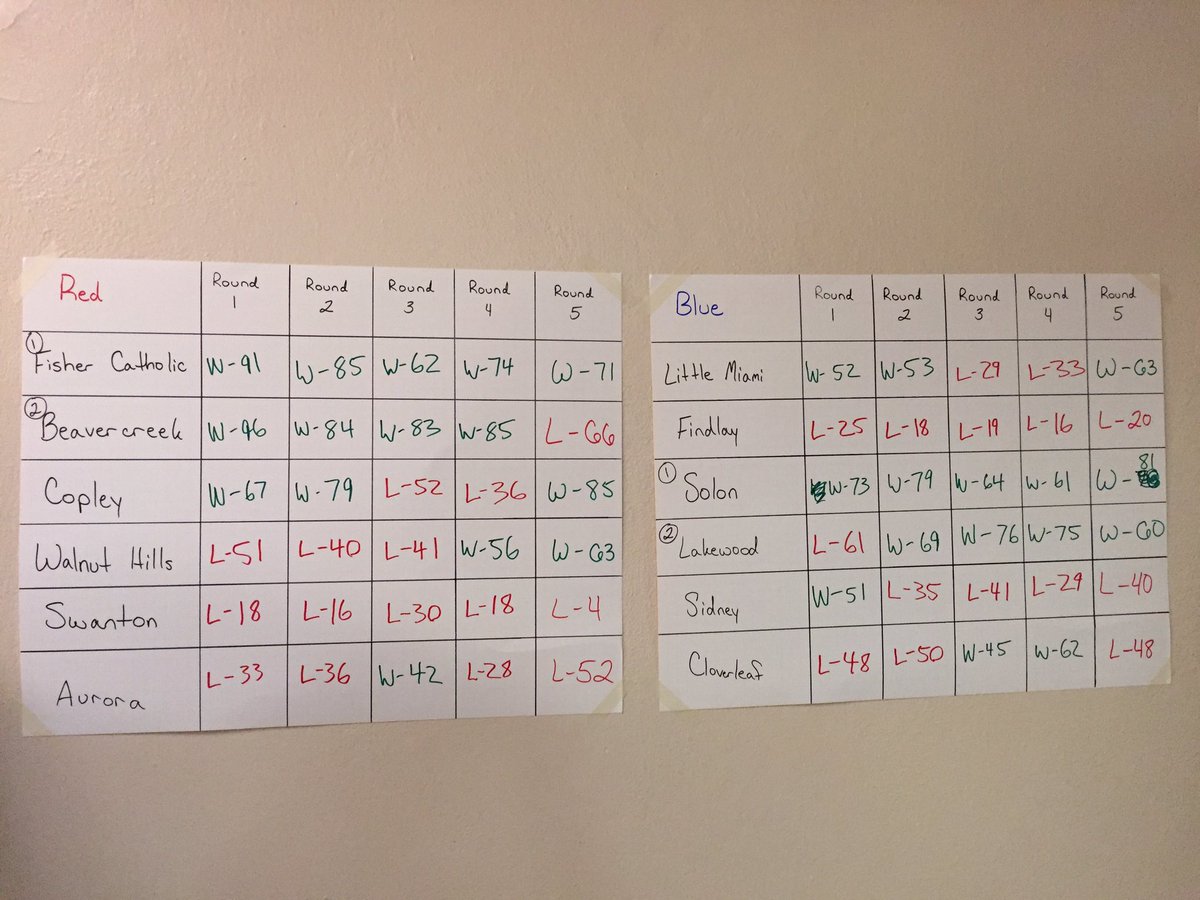 Red Round 1 Round 2 Round 3 Round 4 Round 5
① Fisher Catholic W-91 W-85 W-62 W-74 W-71
② Beavercreek W-96 W-84 W-83 W-85 L-66
Copley W-67 W-79 L-52 L-36 W-85
Walnut Hills L-51 L-40 L-41 W-56 W-63
Swanton L-18 L-16 L-30 L-18 L-4
Aurora L-33 L-36 W-42 L-28 L-52
Blue Round 1 Round 2 Round 3 Round 4 Round 5
Little Miami W-52 W-53 L-29 L-33 W-63
Findlay L-25 L-18 L-19 L-16 L-20
① Solon W-73 W-79 W-64 W-61 W-81
② Lakewood L-61 W-69 W-76 W-75 W-60
Sidney W-51 L-35 L-41 L-29 L-40
Cloverleaf L-48 L-50 W-45 W-62 L-48